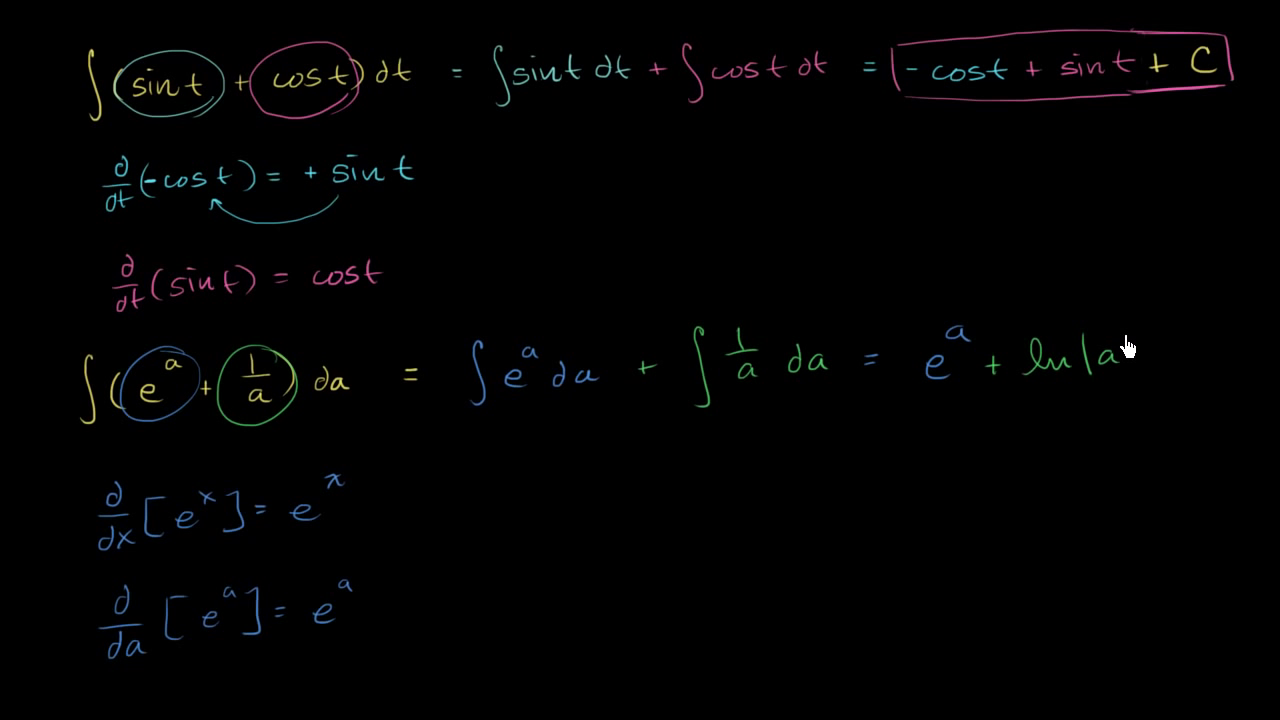 ∫(sin t + cos t) dt = ∫sin t dt + ∫cos t dt = - cos t + sin t + C
d/dt (-cos t) = + sin t
d/dt (sin t) = cos t
∫(e^a + 1/a) da = ∫e^a da + ∫ 1/a da = e^a + ln|a
d/dx [e^x] = e^x
d/da [e^a] = e^a